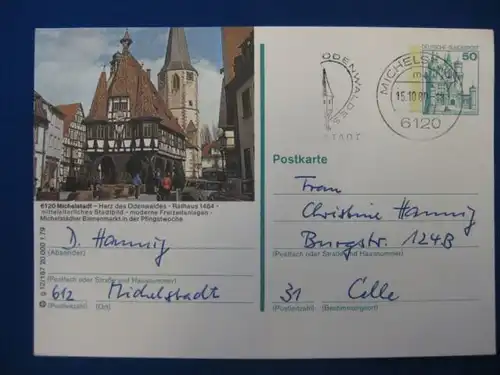 DEUTSCHE BUNDESPOST
50
ODENWALD
STADT
MICHELST
15.10.80
6120
6120 Michelstadt – Herz des Odenwaldes · Rathaus 1484 ·
mittelalterliches Stadtbild · moderne Freizeitanlagen ·
Michelstädter Bienenmarkt in der Pfingstwoche
D. Hannig
(Absender)
(Postfach oder Straße und Hausnummer)
612 Michelstadt
(Postleitzahl) (Ort)
Postkarte
Frau
Christine Hannig
Burgstr. 124B
(Postfach oder Straße und Hausnummer)
31 Celle
(Postleitzahl) (Bestimmungsort)
g 12/187 20 000 1 79